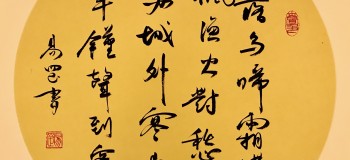 落烏啼霜
楓漁火對愁
蘇城外寒山
半鐘聲到客
易罡書